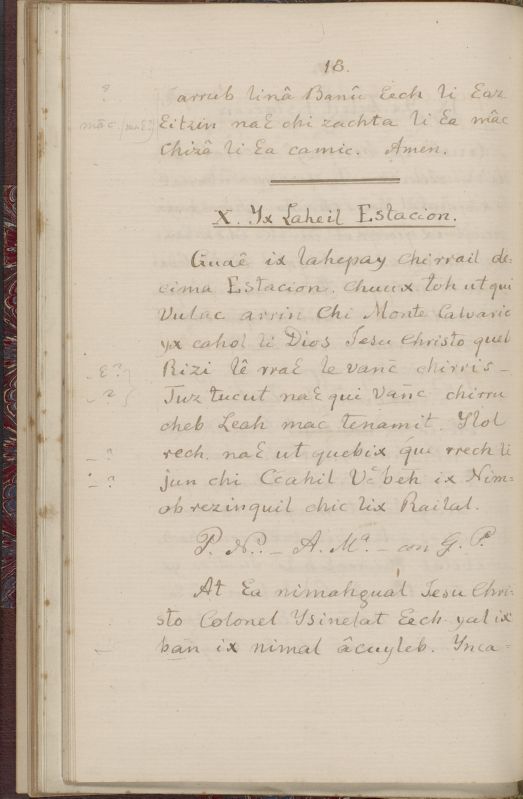 18.
arrub linâ Banû Eech li Eaz
mâc. (maE?) Eitzin naE chi zachta li Ea mâc
chizâ li Ea camic. Amen.
X. Yx Laheil Estacion.
Guaê ix lahepay chirrail de:
cima Estacion. chuux toh ut qui
Vulac arrin chi Monte Calvario
yx cahol li Dios Jesu Christo quel
E? Rizi lê rraE le vanc̄ chirris_
? Tuz tucut naE qui vanc̄ chirru
cheb Leah mac tenamit. Ylol
? rech. naE ut quebix que rrech li
? jun chi Ccahil Vc̄beh ix Nim=
ob rezinquil chic lix Railal.
P. N.º _ A. Mª. _ con G. P.
At Ea nimahgual Jesu Chri:
sto Colonel Ysinelat Eech yal ix
ban ix nimal âcuyleb. Ynca=